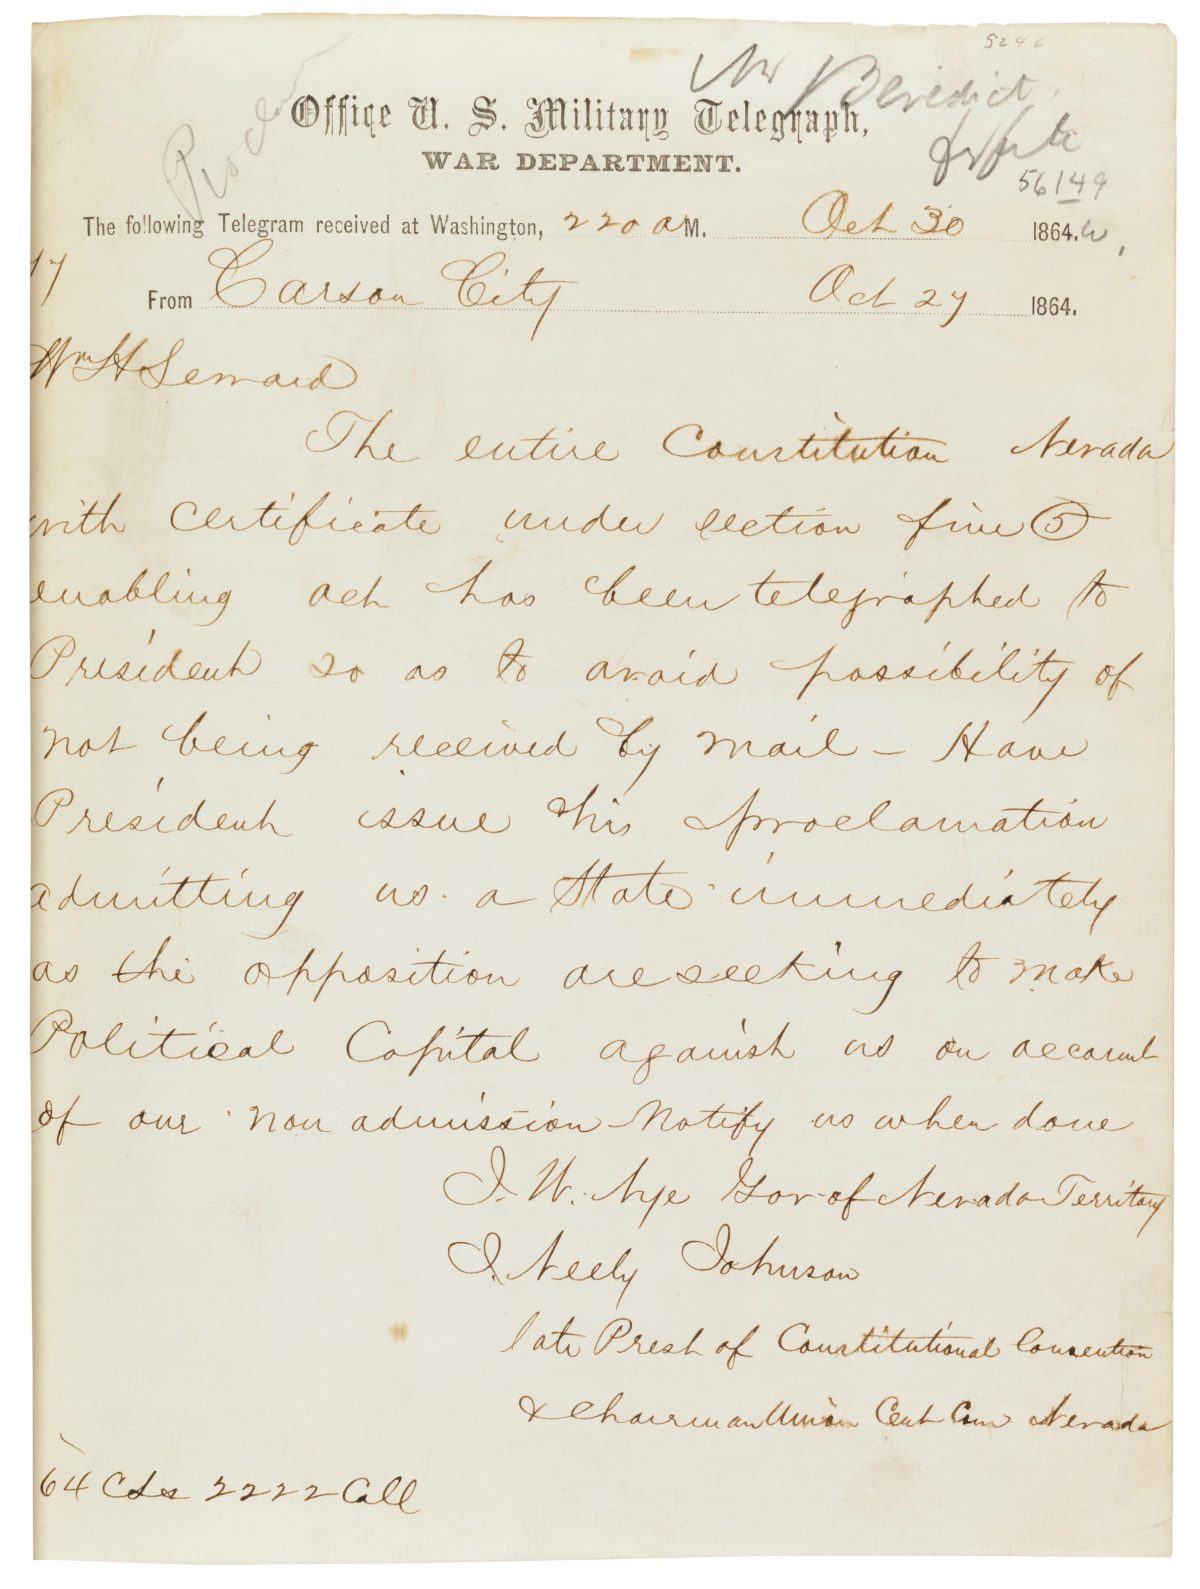 5246
Mr Benedict
Office U. S. Military Telegraph,
WAR DEPARTMENT.
56149
The following Telegram received at Washington, 220 A M. Oct 30 1864.
17
From Carson City Oct 27 1864.
Wm H Seward
The entire Constitution Nevada
with certificate under section five (5)
enabling act has been telegraphed to
President so as to avoid possibility of
not being received by mail – Have
President issue his proclamation
admitting us a State immediately
as the opposition are seeking to make
Political Capital against us on account
of our non admission Notify us when done
J. W. Nye Gov. of Nevada Territory
J. Neely Johnson
late Prest of Constitutional Convention
& Chairman Union Cent Com Nevada
64 2222 Coll